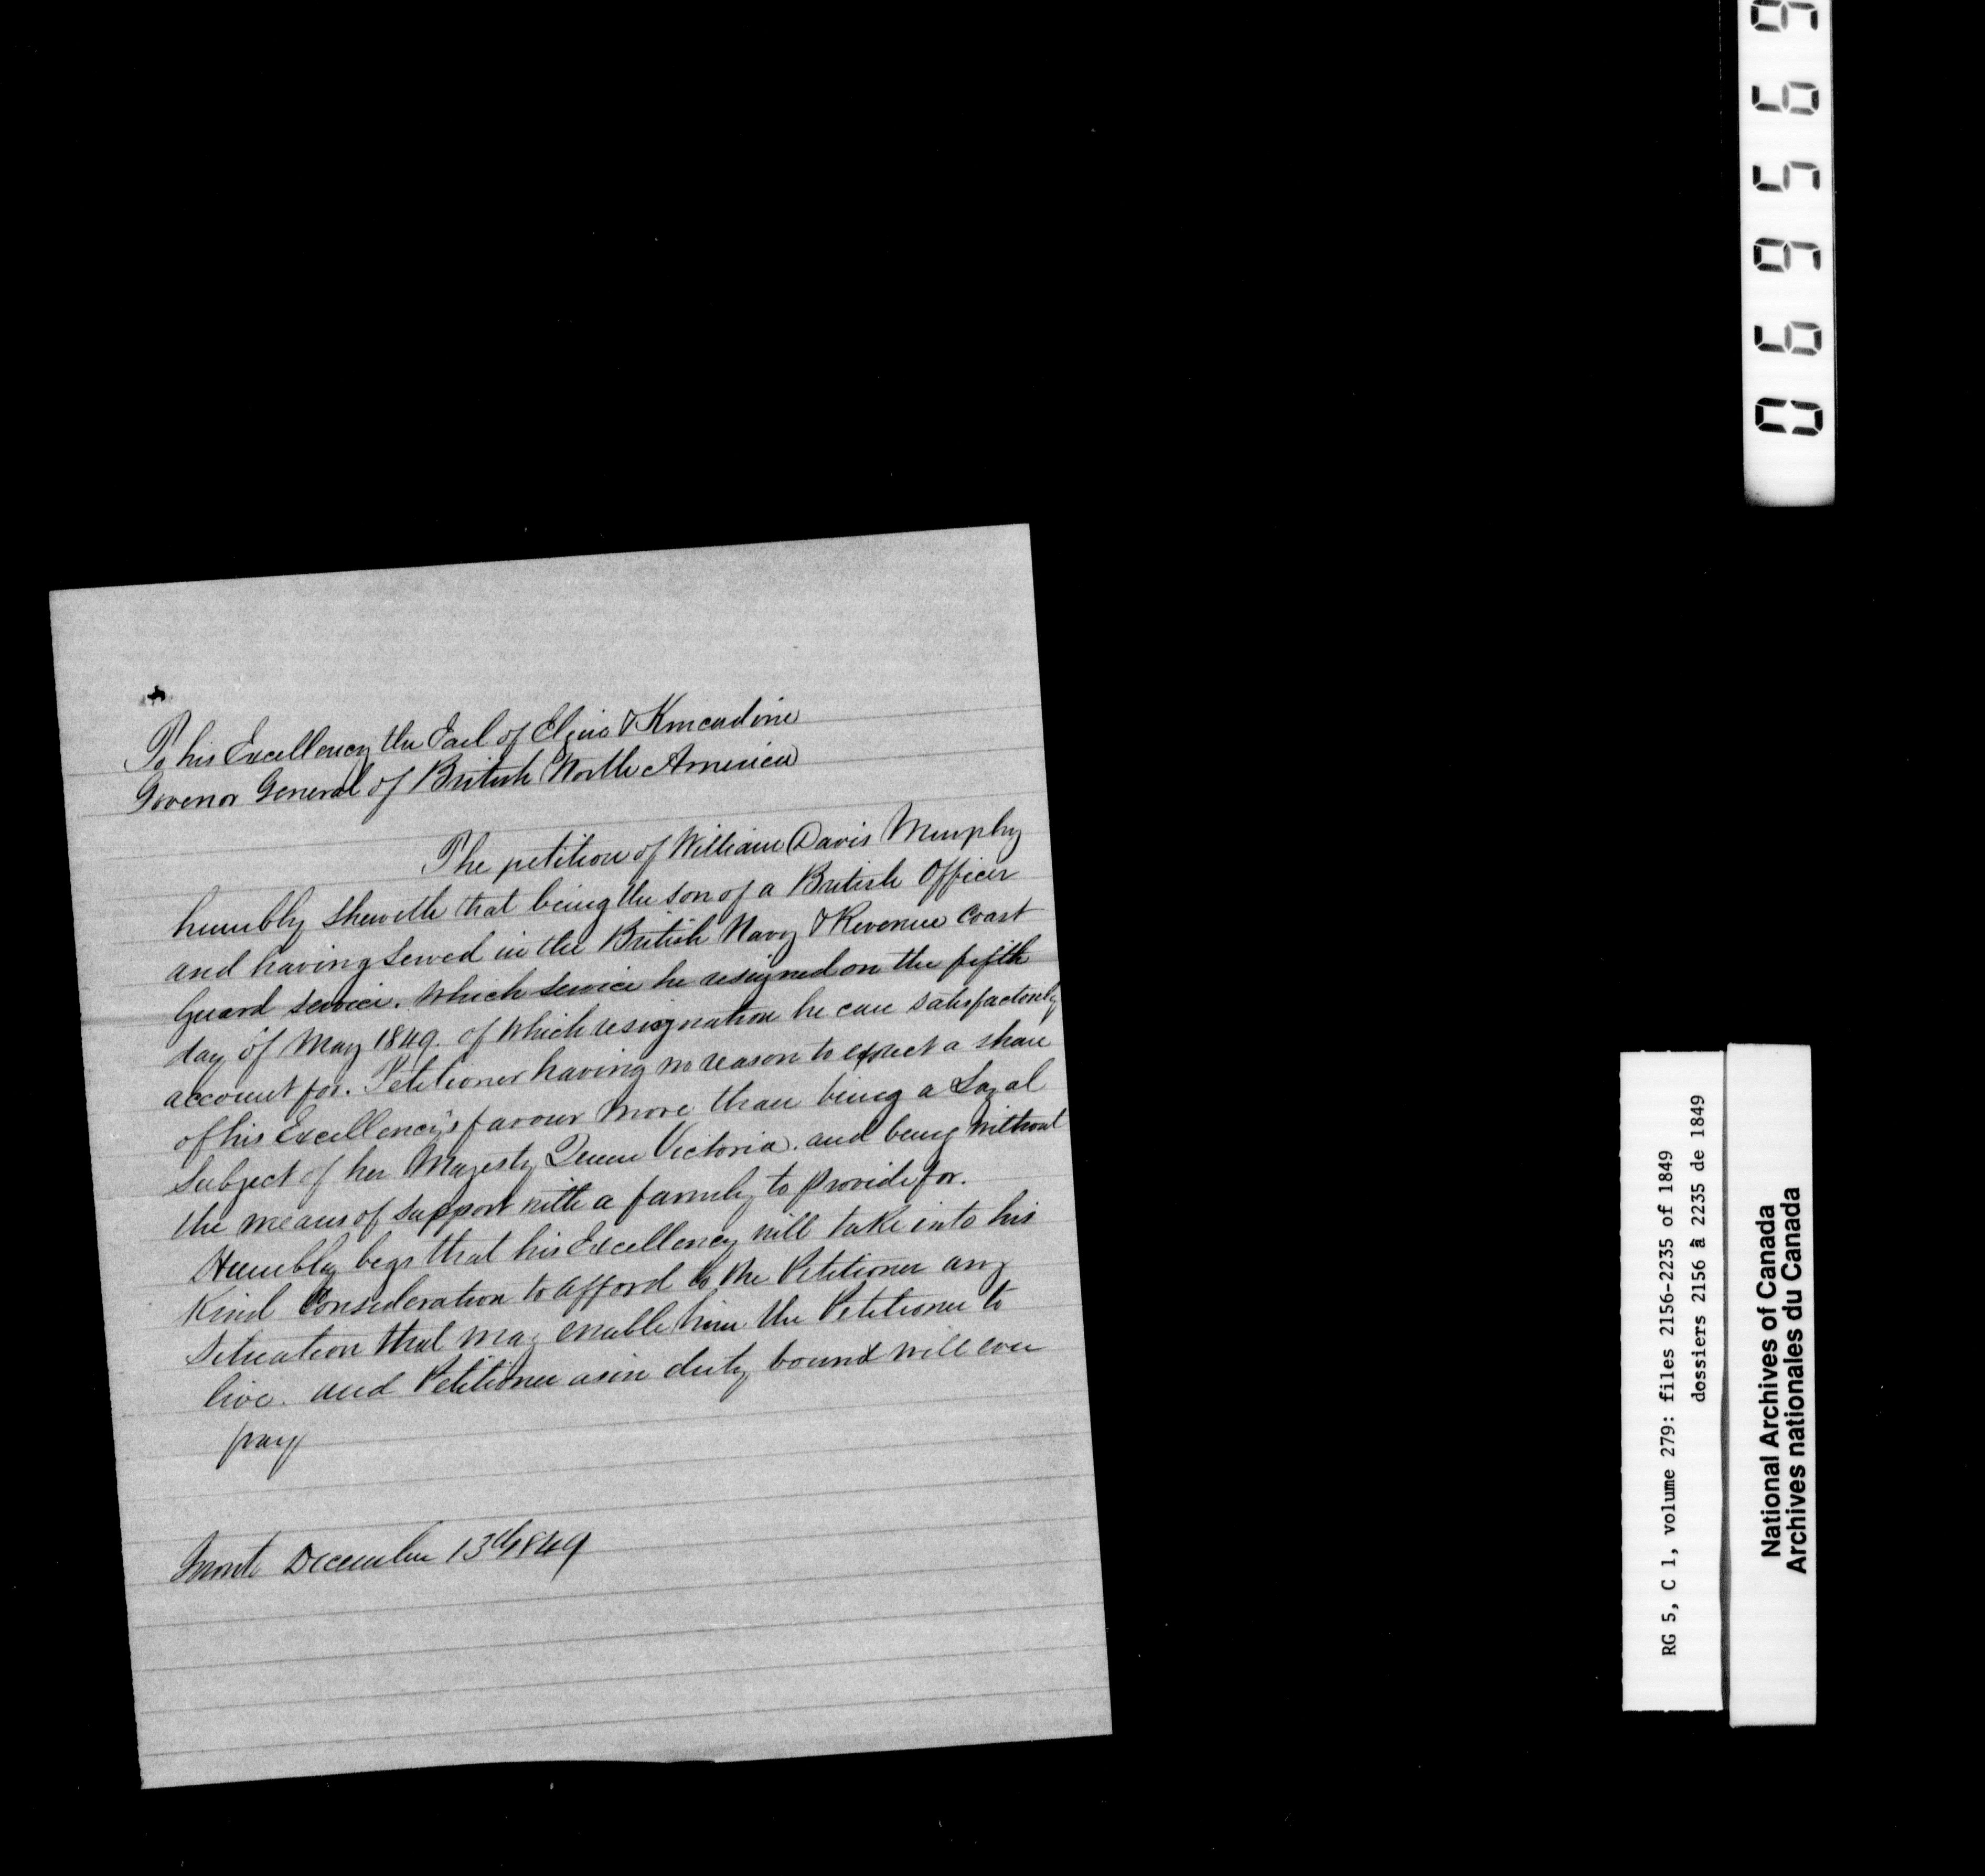 To his Excellency the Earl of Elgin & Kincardine
Govenor General of British North America
The petition of William Davis Murphy
humbly sheweth that being the son of a British Officer
and having served in the British Navy & Revenue Coast
Guard service. Which service he resigned on the fifth
day of May 1849. of which resignation he can satisfactorily
account for. Petitioner having no reason to expect a share
of his Excellency's favour more than being a Loyal
Subject of her Majesty Queen Victoria. and being without
the means of support with a family to provide for.
Humbly begs that his Excellency will take into his
Kind Consideration to afford to the Petitioner any
Situation that may enable him the Petitioner to
live. and Petitioner as in duty bound will ever
pray
December 13th 1849
069569
RG 5, C 1, volume 279: files 2156-2235 of 1849
dossiers 2156 à 2235 de 1849
National Archives of Canada
Archives nationales du Canada